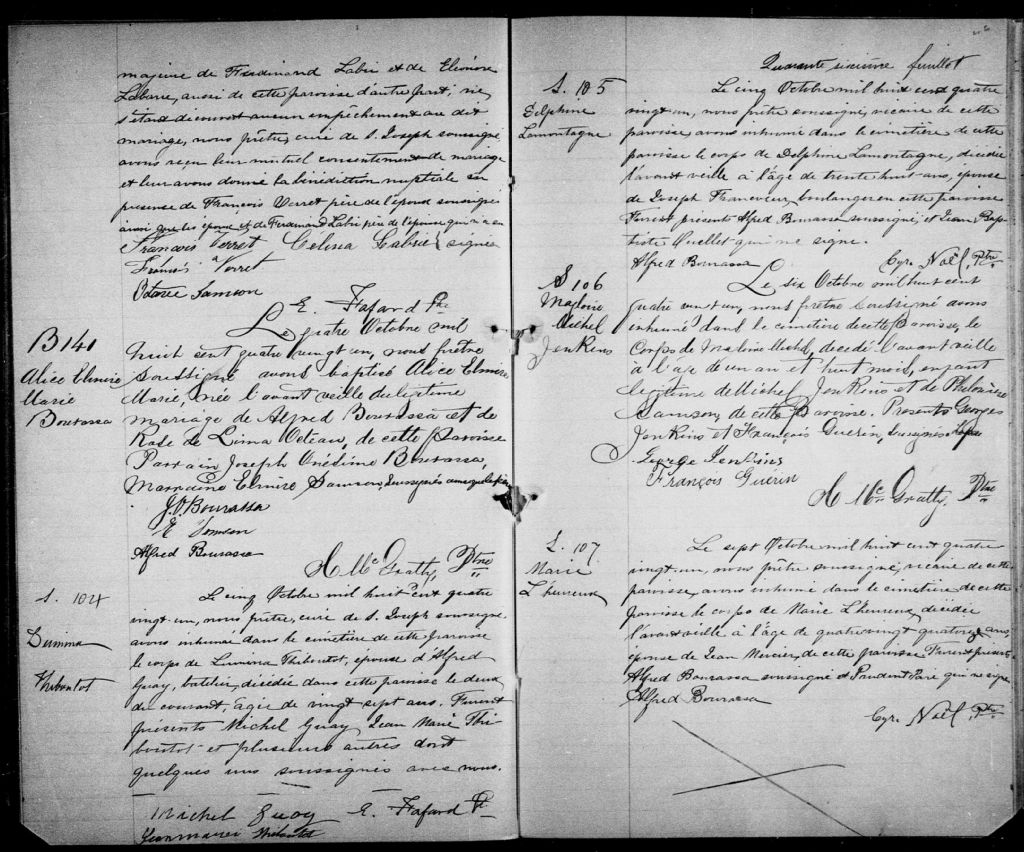 majeure de Ferdinand Labrie et de Eléonore
Labarre, aussi de cette paroisse d'autre part; ne
s'étant découvert aucun empêchement au dit
mariage, nous prêtre, curé de S. Joseph soussigné,
avons reçu leur mutuel consentement de mariage
et leur avons donné la bénédiction nuptiale en
présence de François Verret père de l'époux soussigné
ainsi que les époux et de Ferdinand Labrie père de l'épouse qui n'a su
François Verret Celina Labrie signer
François Verret
Octavie Samson
E. Fafard Ptre
B 141
Alice Elmire
Marie
Bourassa
Le quatre Octobre mil
huit cent quatre vingt un, nous prêtre
soussigné avons baptisé Alice Elmire
Marie, née l'avant veille du légitime
mariage de Alfred Bourassa et de
Rose de Lima Odeau, de cette Paroisse
Parrain Joseph Onésime Bourassa,
Marraine Elmire Samson, soussignés ainsi que le père
J.O. Bourassa
E Samson
Alfred Bourassa
H Mc Gratty, Ptre
S. 104
Lumina
Thibontot
Le cinq Octobre mil huit cent quatre
vingt un, nous prêtre, curé de S. Joseph soussigné
avons inhumé dans le cimetière de cette paroisse
le corps de Lumina Thiboutot, épouse d'Alfred
Guay, batelier, décédée dans cette paroisse le deux
du courant, agée de vingt sept ans. Furent
présents Michel Guay, Jean Marie Thi
boutot et plusieurs autres dont
quelques uns soussignés avec nous.
Michel Guay E. Fafard Pt
Jean marie Thiboutot
Quarante sixième feuillet
S. 105
Delphine
Lamontagne
Le cinq Octobre mil huit cent quatre
vingt-un, nous prêtre soussigné, vicaire de cette
paroisse, avons inhumé dans le cimetière de cette
paroisse le corps de Delphine Lamontagne, décédée
l'avant veille à l'âge de trente huit ans, épouse
de Joseph boulanger en cette paroisse
Furent présents Alfred Bourassa soussigné et Jean Bap-
tiste Ouellet qui ne signe.
Alfred Bourassa Cyr. Noël, Ptre
S 106
Michel
Jenkins
Le six Octobre mil huit cent
quatre vingt un, nous prêtre soussigné avons
inhumé dans le cimetière de cette Paroisse, le
corps de Michel, decédé l'avant veille
à l'age de un an et huit mois, enfant
légitime de Michel Jenkins et de Philomène
Samson, de cette Paroisse. Présents Georges
Jenkins et François Guérin, soussignés
George Jenkins
François Guérin
H Mc Gratty, Ptre
S. 107
Marie
L'heureux
Le sept Octobre mil huit cent quatre
vingt-un, nous prêtre soussigné, vicaire de cette
paroisse, avons inhumé dans le cimetière de cette
paroisse le corps de Marie L'heureux, décédée
l'avant veille à l'âge de quatre vingt quatorze ans,
épouse de Jean Mercier, de cette paroisse. Furent présents
Alfred Bourassa soussigné et Prudent Paré qui ne signe
Alfred Bourassa
Cyr. Noël, Ptre